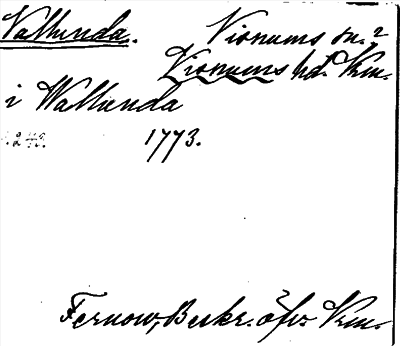 Vallunda. Visnums sn. 2
Visnums hd. Vrm.
i Wallunda
s. 243. 1773.
Fernow, Beskr. öfv. Vrm.